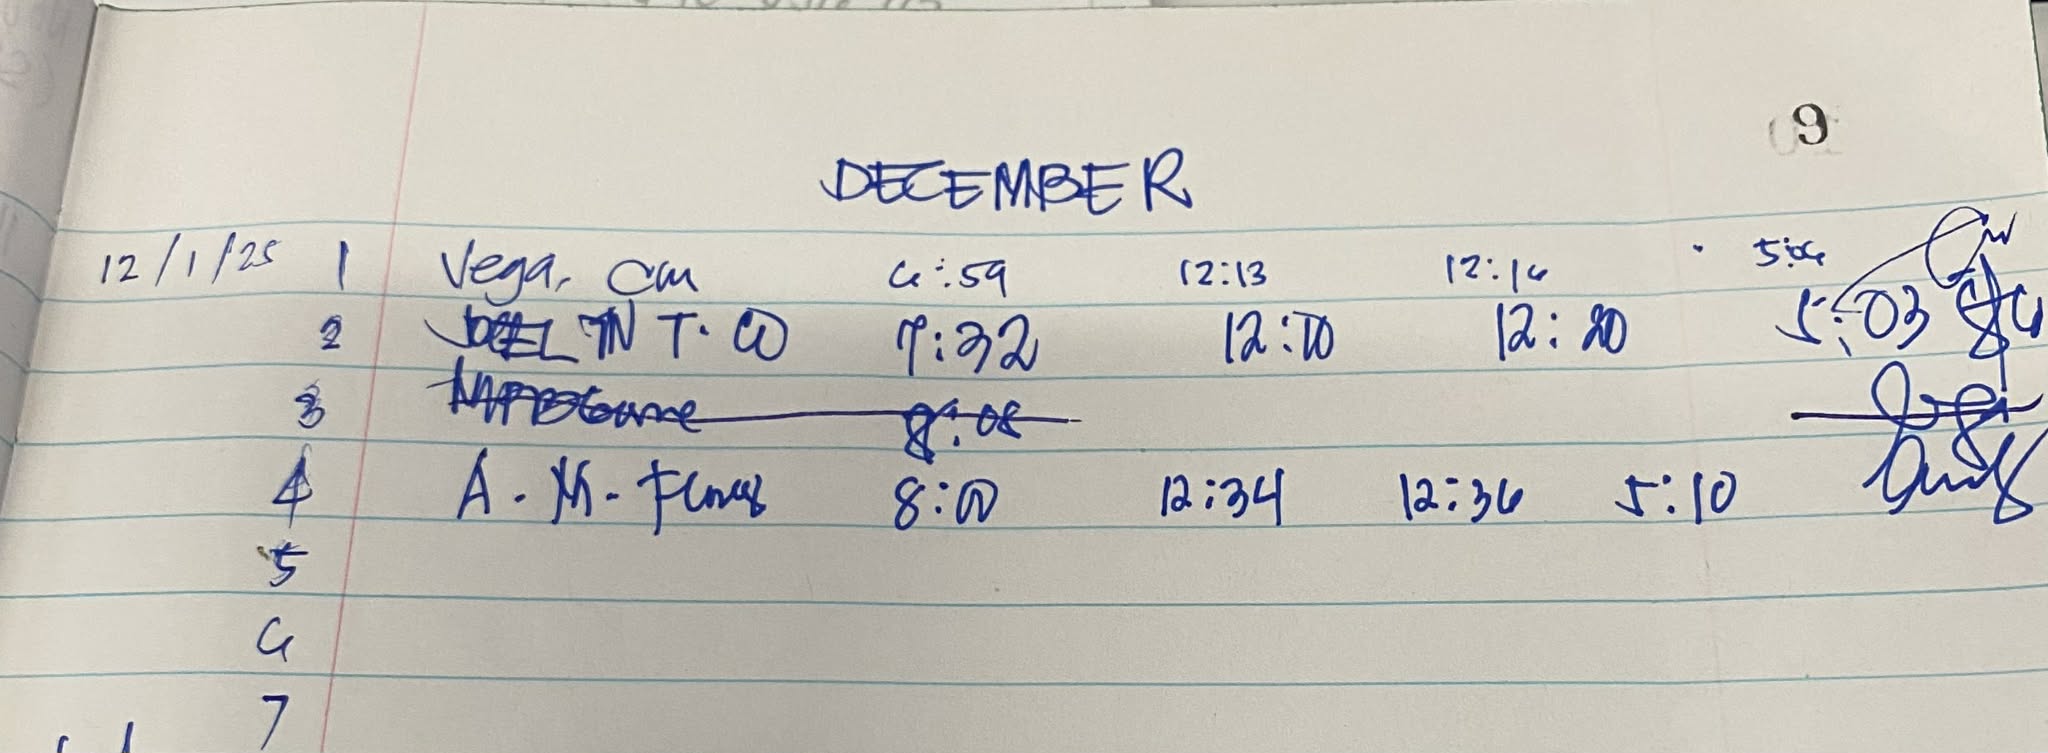 9
DECEMBER
12/1/25 1 Vega, CM 6:59 12:13 12:16 5:06
2 JOCELYN T. CO 7:32 12:10 12:20 5:03
3 8:08
4 A. M. Flores 8:00 12:34 12:36 5:10
5
6
7